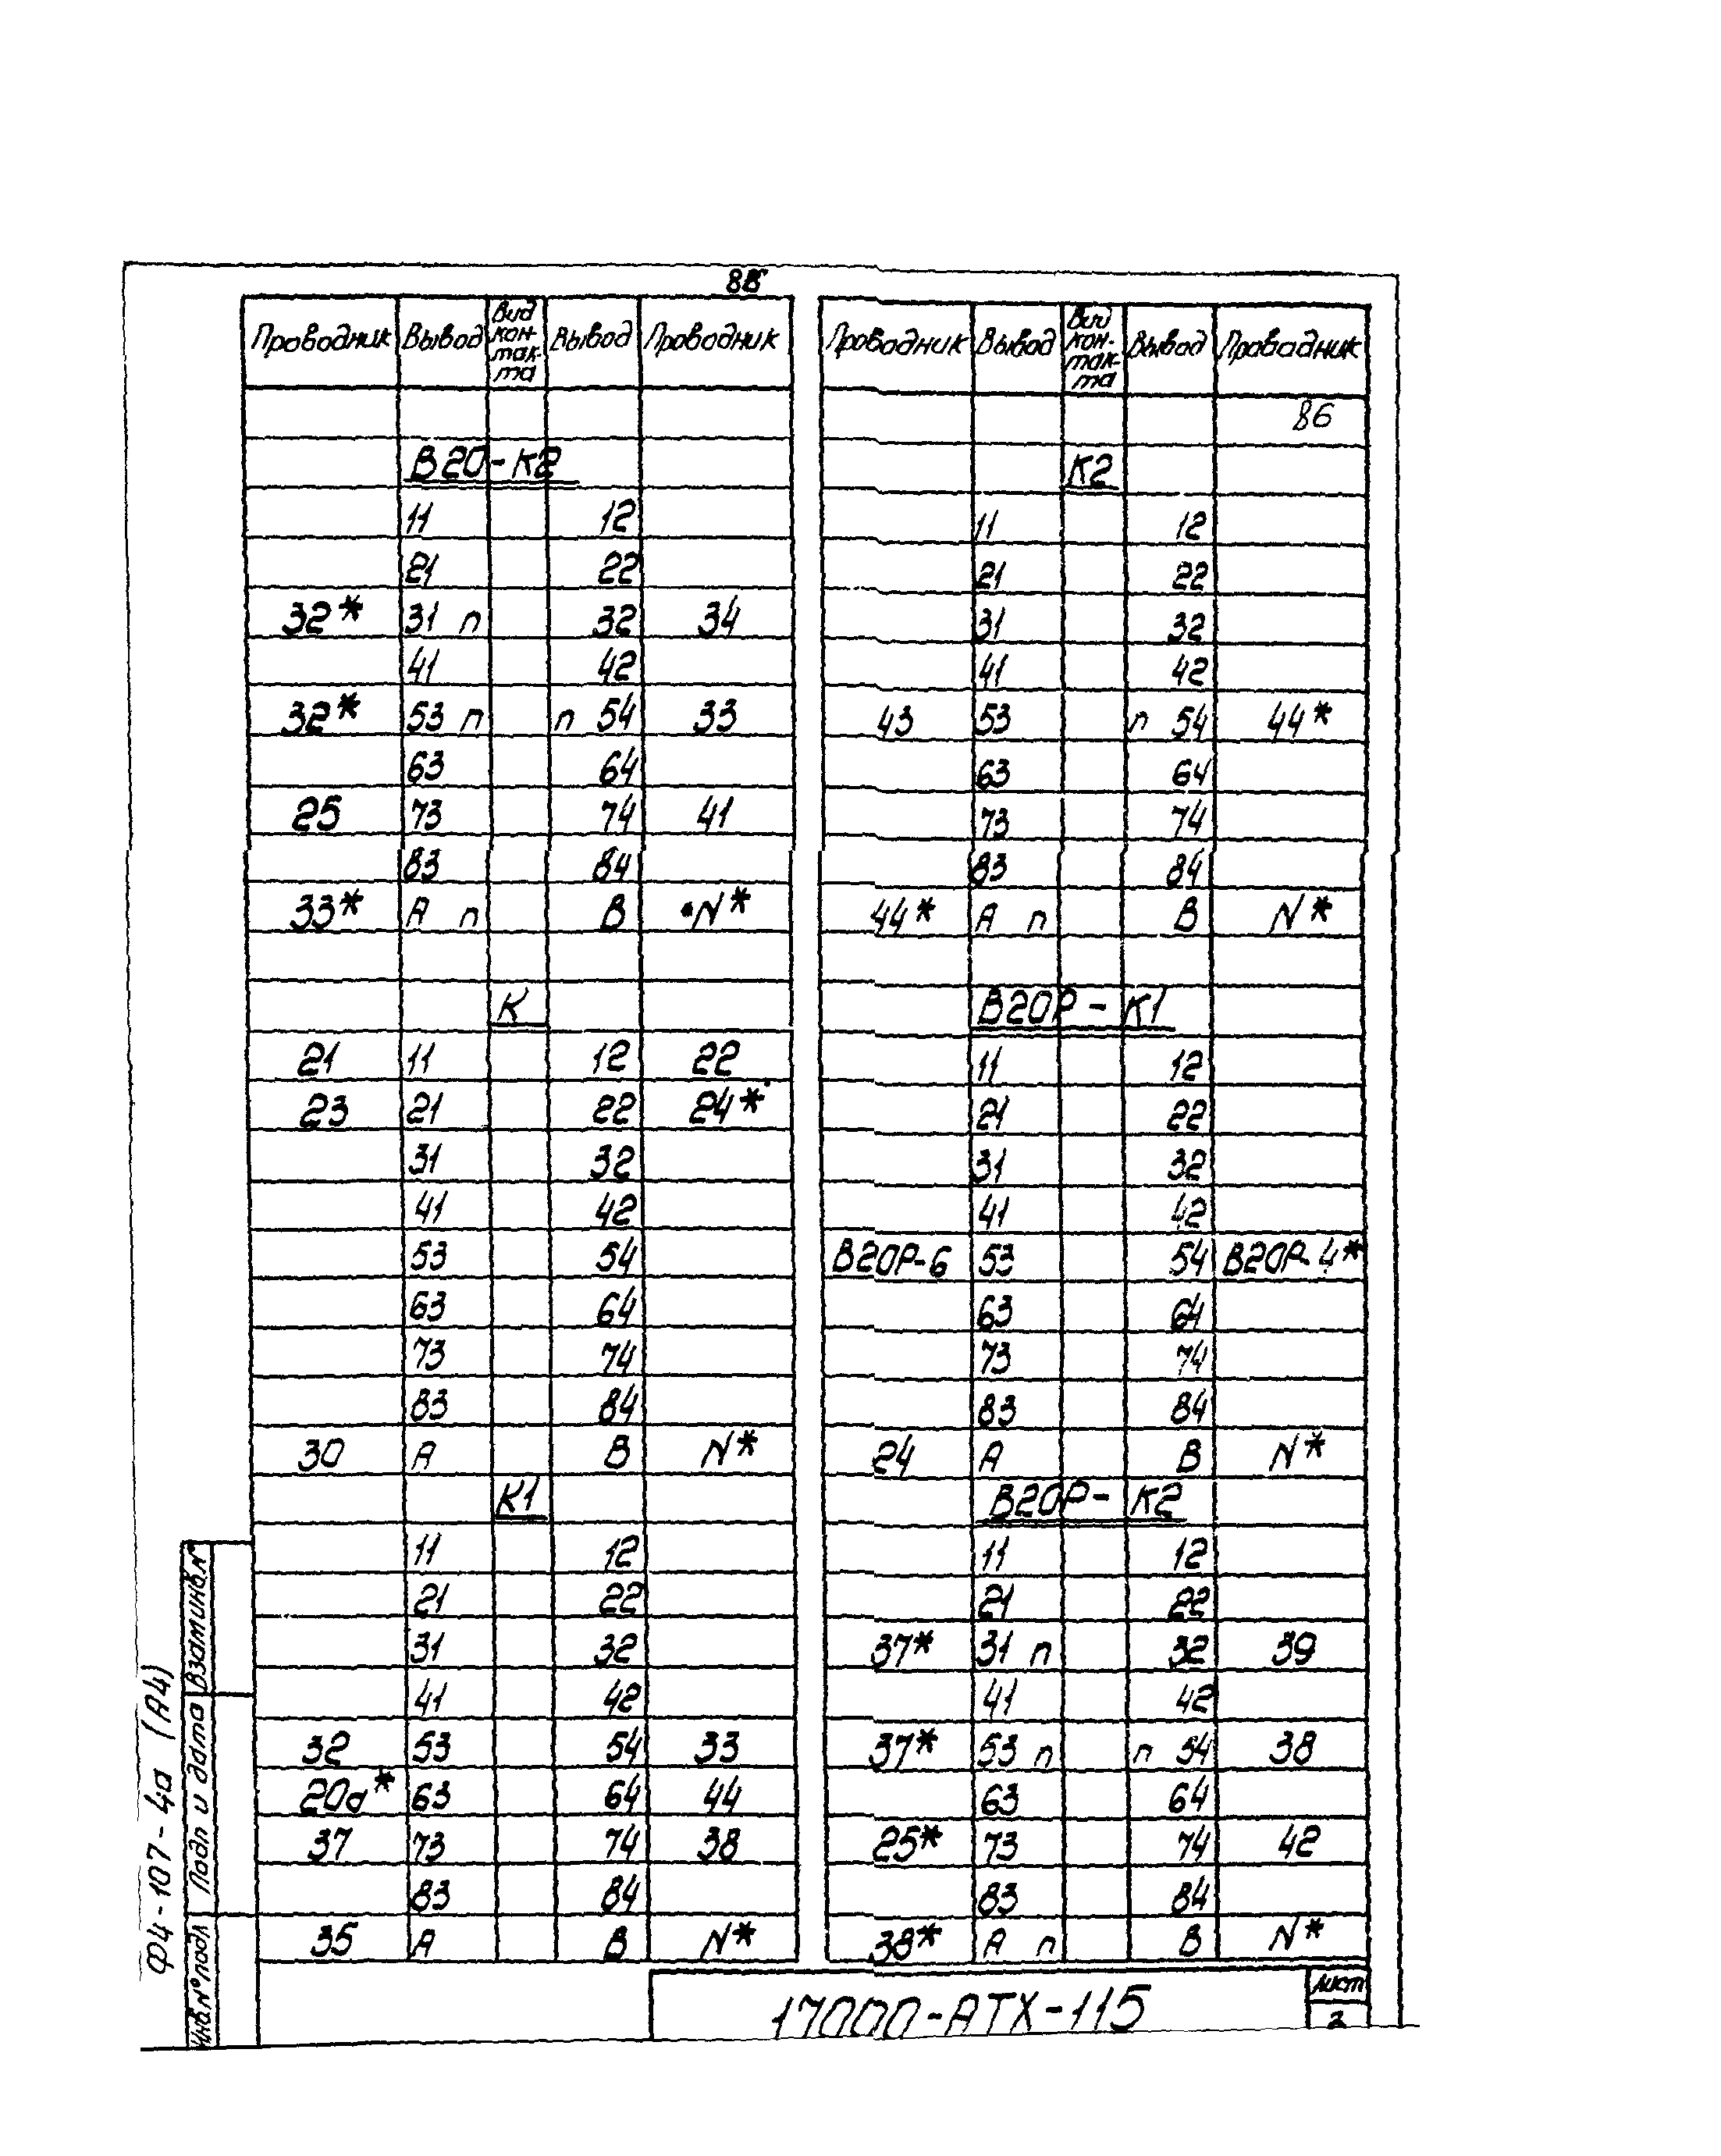 88
Проводник Вывод Вид кон- так- та Вывод Проводник
В20-К2
11 12
21 22
32* 31 п 32 34
41 42
32* 53 п п 54 33
63 64
25 73 74 41
83 84
33* А п В N*
К
21 11 12 22
23 21 22 24*
31 32
41 42
53 54
63 64
73 74
83 84
30 А В N*
К1
11 12
21 22
31 32
41 42
32 53 54 33
20а* 63 64 44
37 73 74 38
83 84
35 А В N*
Проводник Вывод Вид кон- так- та Вывод Проводник
86
К2
11 12
21 22
31 32
41 42
43 53 п 54 44*
63 64
73 74
83 84
44* А п В N*
В20Р-К1
11 12
21 22
31 32
41 42
В20Р-6 53 54 В20Р-4*
63 64
73 74
83 84
24 А В N*
В20Р-К2
11 12
21 22
37* 31 п 32 39
41 42
37* 53 п п 54 38
63 64
25* 73 74 42
83 84
38* А п В N*
17000-АТХ-115
Лист
3
Ф4-107-4а (А4)
Инв.№ подл
Подп и дата
Взам инв.№